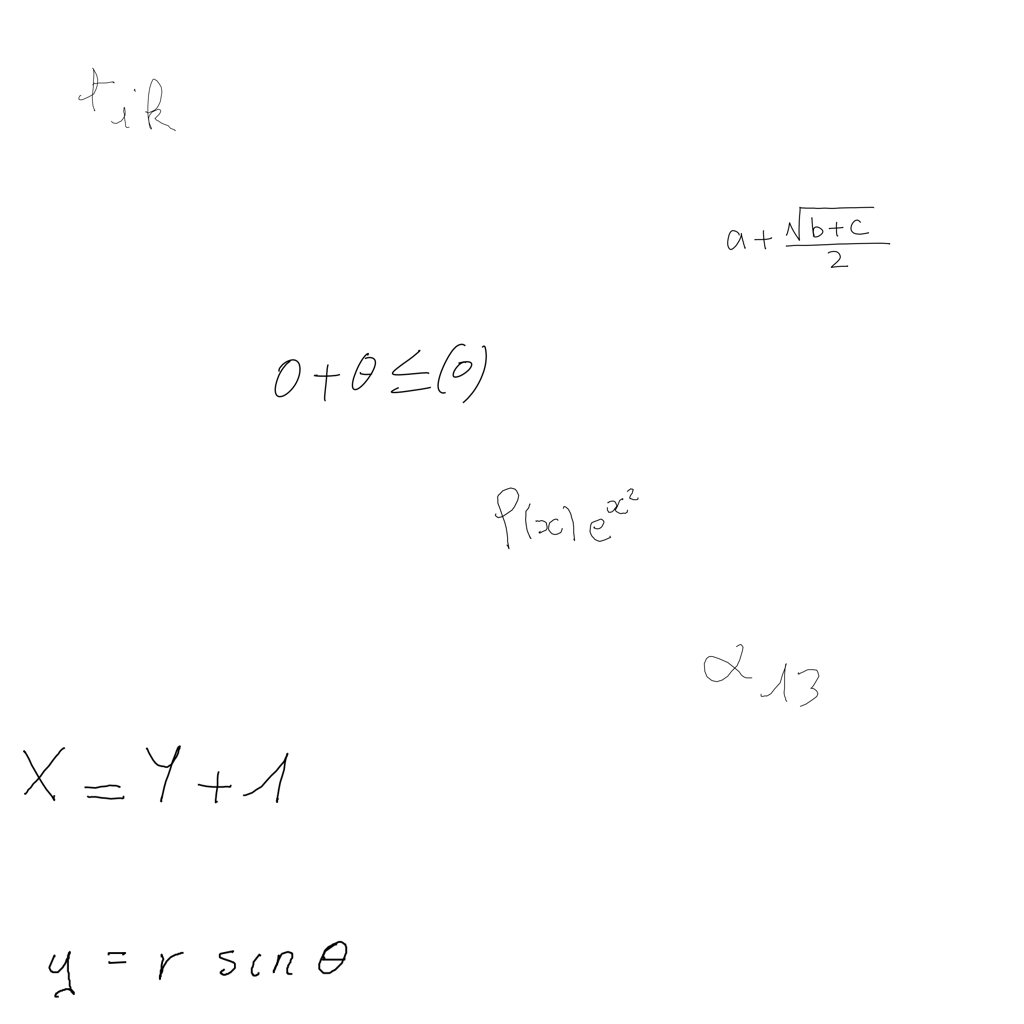 t_{ik}
a + \frac{\sqrt{b+c}}{2}
0 + θ ≤ (0)
P(x) e^{x^2}
α_{13}
X = Y + 1
y = r sin θ